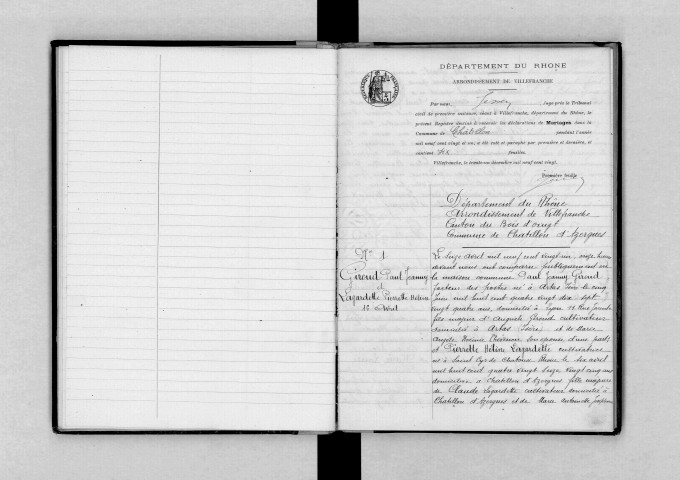 DÉPARTEMENT DU RHONE
ARRONDISSEMENT DE VILLEFRANCHE
Par nous, juge près le Tribunal
civil de première instance, séant à Villefranche, département du Rhône, le
présent Registre destiné à recevoir les déclarations de Mariages dans la
Commune de Châtillon pendant l'année
mil neuf cent vingt et un, a été coté et paraphé par première et dernière, et
contient six feuilles.
Villefranche, le trente-un décembre mil neuf cent vingt.
Première feuille
Département du Rhône
Arrondissement de Villefranche
Canton du Bois d'oingt
Commune de Chatillon d'Azergues
N° 1
Giroud Paul Joanny
et
Lagardette Pierrette Hélène
16 Avril
Le seize avril mil neuf cent vingt un, onze heures
devant nous ont comparu publiquement en
la maison commune Paul Joanny Giroud
facteur des postes né à Artas Isère le cinq
Juin mil huit cent quatre vingt dix sept
vingt quatre ans, domicilié à Lyon
fils majeur d'Auguste Giroud cultivateur
domicilié à Artas (Isère) et de Marie
son épouse d'une part;
et Pierrette Hélène Lagardette cultivatrice
née à Saint Cyr de Rhône le six avril
mil huit cent quatre vingt seize vingt cinq ans
domiciliée à Chatillon d'Azergues fille majeure
de Claude Lagardette cultivateur domicilié à
Chatillon d'Azergues et de Marie Antoinette